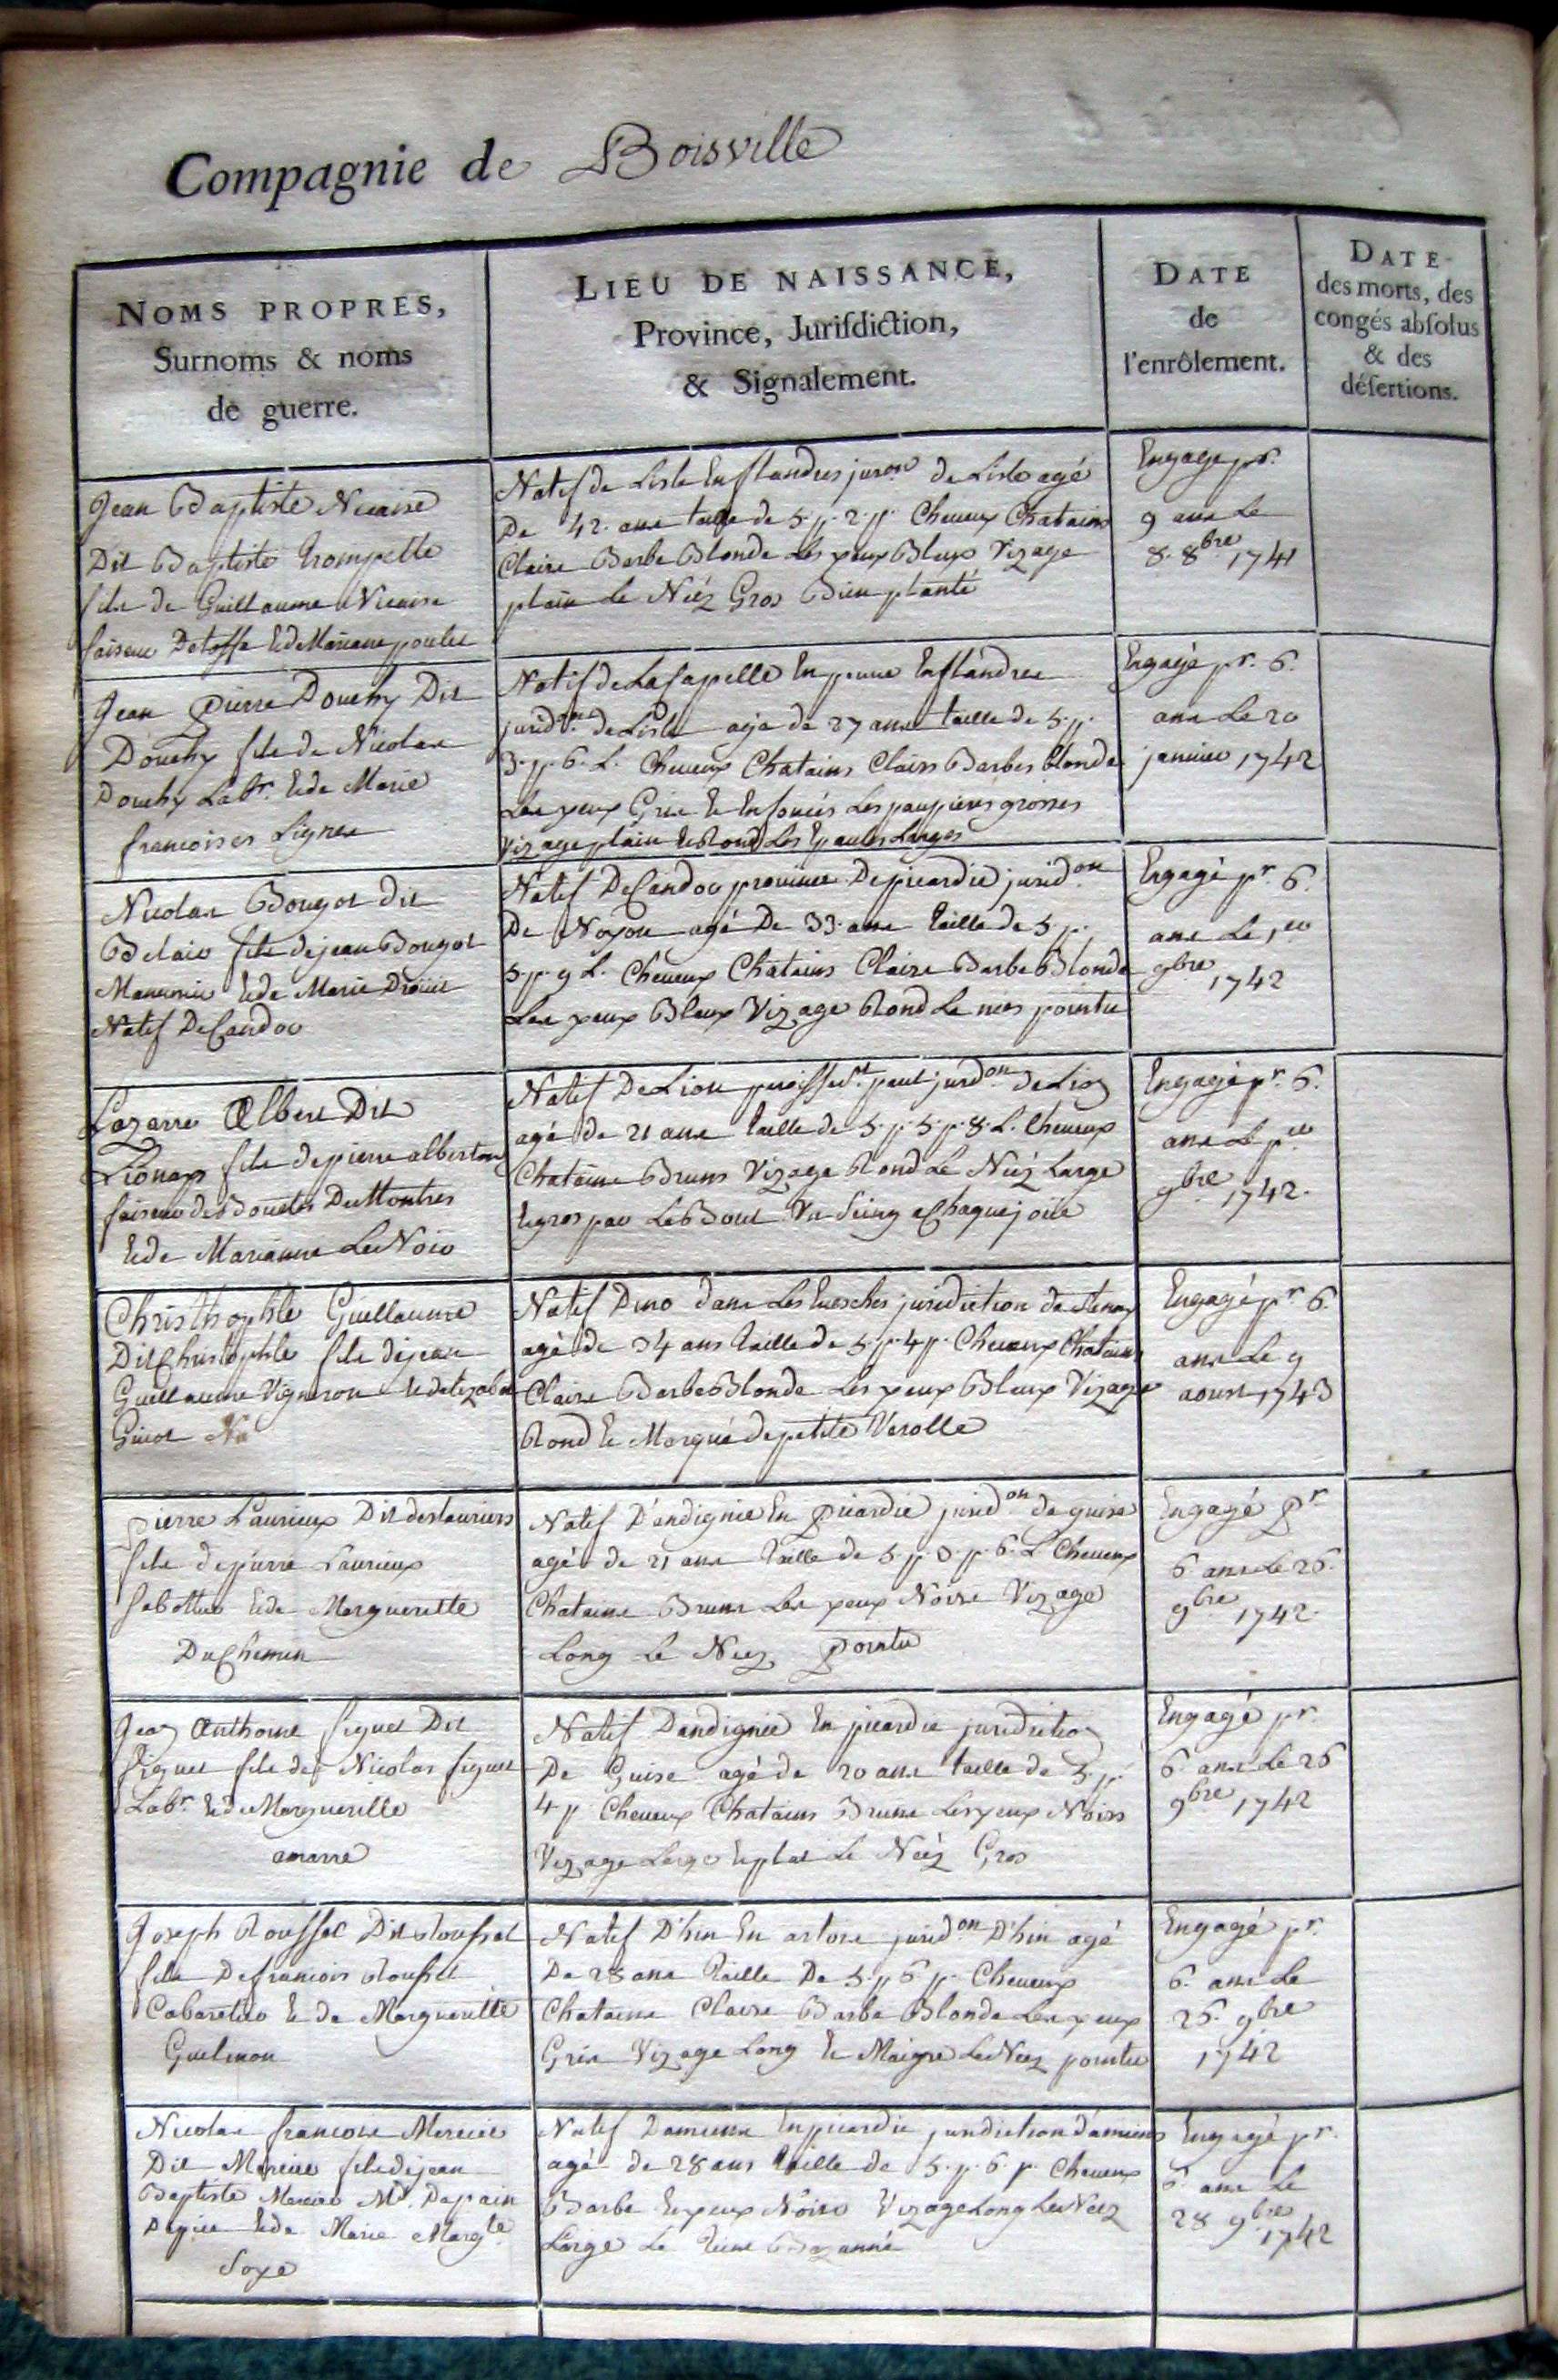 Compagnie de Boisville
NOMS PROPRES,
Surnoms & noms
de guerre.
LIEU DE NAISSANCE,
Province, Jurisdiction,
& Signalement.
DATE
de
l'enrôlement.
DATE
des morts, des
congés absolus
& des
désertions.
Jean Baptiste Nicaise
Dit Baptiste trompette
fils de Guillaume Nicaise
faiseur Detoffe et de Mariane poulet
Natif de Lisle En flandres juron de Lisle agé
De 42 ans taille de 5. p. 2. p. Cheveux Chatains
Claire Barbe Blonde Les yeux Bleux Vizage
plain Le Néz Gros Bien planté
Engage pr.
9 ans Le
8. 8bre 1741
Jean pierre Douchy Dit
Douchy fils de Nicolas
Douchy Labr. et de Marie
francoises Lignes
Natif de La Capelle En Flandres
juridon de Lisle agé de 27 ans taille de 5. p.
3. p. 6. L. Cheveux Chatains Clairs Barbes blonde
Les yeux Gris et Enfoncés Les paupieres grosses
Vizage plain et Rond Les Epaules Larges
Engagé pr. 6.
ans Le 20
janvier 1742
Nicolas Bougot dit
Belair fils de jean Bougot
et de Marie
Natif De Candor
Natif De Candor province De picardie juridon
De Noyon agé De 33. ans taille de 5 p.
5. p. 9 L. Cheveux Chatains Claire Barbe Blonde
Les yeux Bleux Vizage Rond Le nés pointu
Engagé pr. 6.
ans Le 1er
9bre 1742
Lazarre Albert Dit
Lionnax fils de pierre albert
faiseur de Boucles De Montres
et de Marianne Le Noir
Natif De Lion paroisse St. paul jurdon de Lion
agé de 21 ans taille de 5. p. 5. p. 8. L. Cheveux
Chataine Bruns Vizage Rond Le Néz Large
et gros par Le Bout Un Seing a Chaque joüe
Engagé pr. 6.
ans Le per
9bre 1742.
Christhophle Guillaume
Dit Christophle fils de jean
Guillaume Vigneron et de
Natif Dino dans Les Evesches juridiction de Stenay
agé de 34 ans taille de 5. p. 4 p. Cheveux Chatains
Claire Barbe Blonde Les yeux Bleux Vizage
Rond et Marqué de petite Verolle
Engagé pr 6.
ans Le 9
aoust 1743
Pierre Laurieux Dit deslauriers
fils de pierre Laurieux
Sabottier et de Margueritte
Du Chemin
Natif D'andignie En picardie juridon de guise
agé de 21 ans taille de 5. p. 3. p. 6. L Cheveux
Chataine Bruns Les yeux Noirs Vizage
Long Le Nez pointu
Engagé pr
6. ans Le 26.
9bre 1742.
Jean Anthoine figuet Dit
figuet fils de Nicolas figuet
Labr. et de Margueritte
amarre
Natif Dandignie En picardie juridiction
De Guise agé de 20 ans taille de 5. p.
4 p Cheveux Chatains Bruns Les yeux Noirs
Vizage Large et plat Le Néz Gros
Engagé pr.
6 ans Le 26
9bre 1742
Joseph Roussel Dit Roussel
fils De francois Roussel
Cabaretier et de Margueritte
Guelmon
Natif D'hin En artois juridon D'hin agé
De 28 ans taille De 5. p 6 p. Cheveux
Chatains Claire Barbe Blonde Les yeux
Gris Vizage Long et Maigre Le Nez pointu
Engagé pr.
6. ans Le
26. 9bre
1742
Nicolas francois Mercier
Dit Mercier fils de jean
Baptiste Mercier Md. De pain
Depice et de Marie Margte
Soye
Natif Damiens En picardie juridiction d'amiens
agé de 28 ans taille de 5. p. 6 p. Cheveux
Barbe et yeux Noirs Vizage Long Le Nez
Large Le teint Bazanné
Engagé pr.
6 ans Le
28 9bre
1742